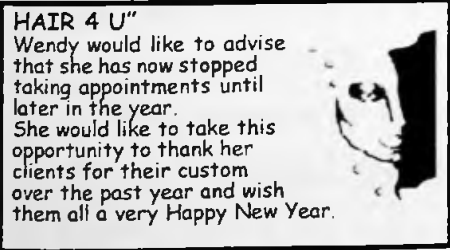 HAIR 4 U"
Wendy would like to advise
that she has now stopped
taking appointments until
later in the year.
She would like to take this
opportunity to thank her
clients for their custom
over the past year and wish
them all a very Happy New Year.